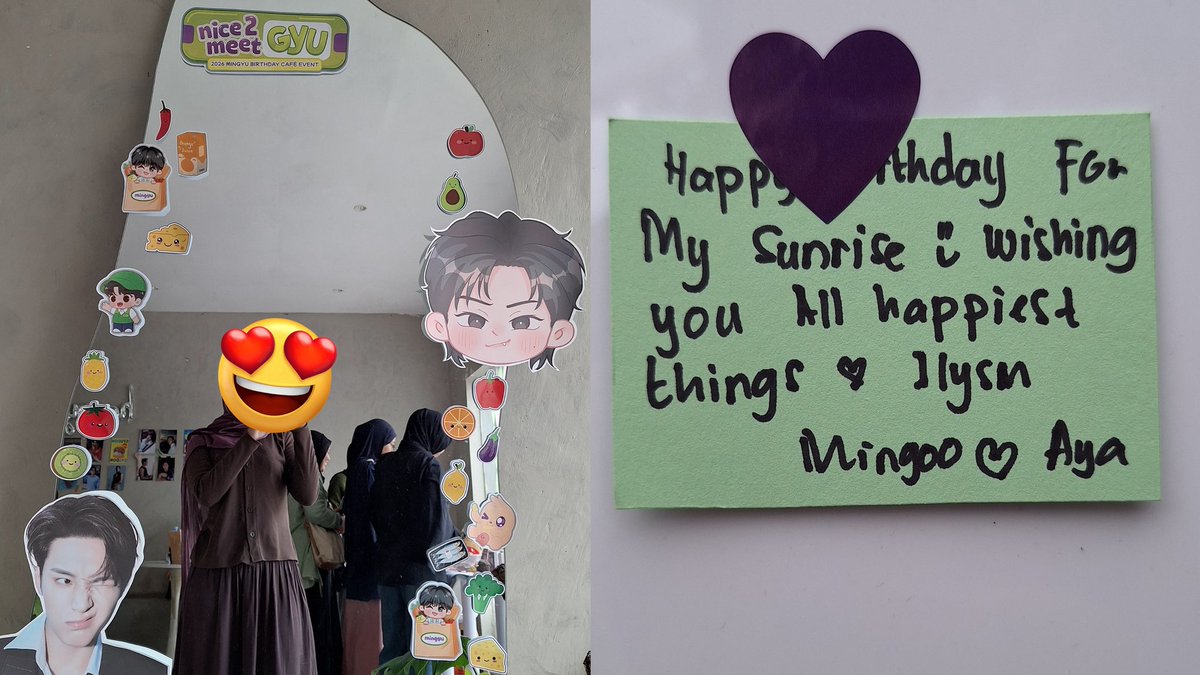 nice 2
meet GYU
2026 MINGYU BIRTHDAY CAFÉ EVENT
mingyu
mingyu
Happy rthday For
My Sunrise ü wishing
you All happiest
things ♥ Ilysm
Mingoo ♡ Aya